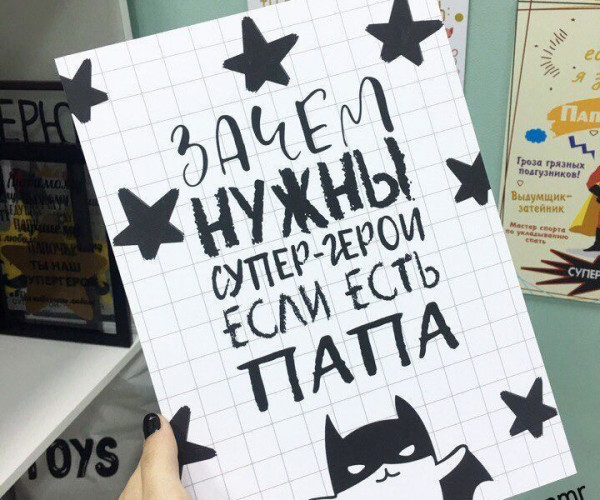 ЗАЧЕМ
НУЖНЫ
СУПЕР-ГЕРОИ
ЕСЛИ ЕСТЬ
ПАПА
Гроза грязных
подгузников!
Выдумщик-
затейник
Мастер спорта
по укладыванию
спать
ТЫ НАШ
СУПЕРГЕРОЙ
TOYS